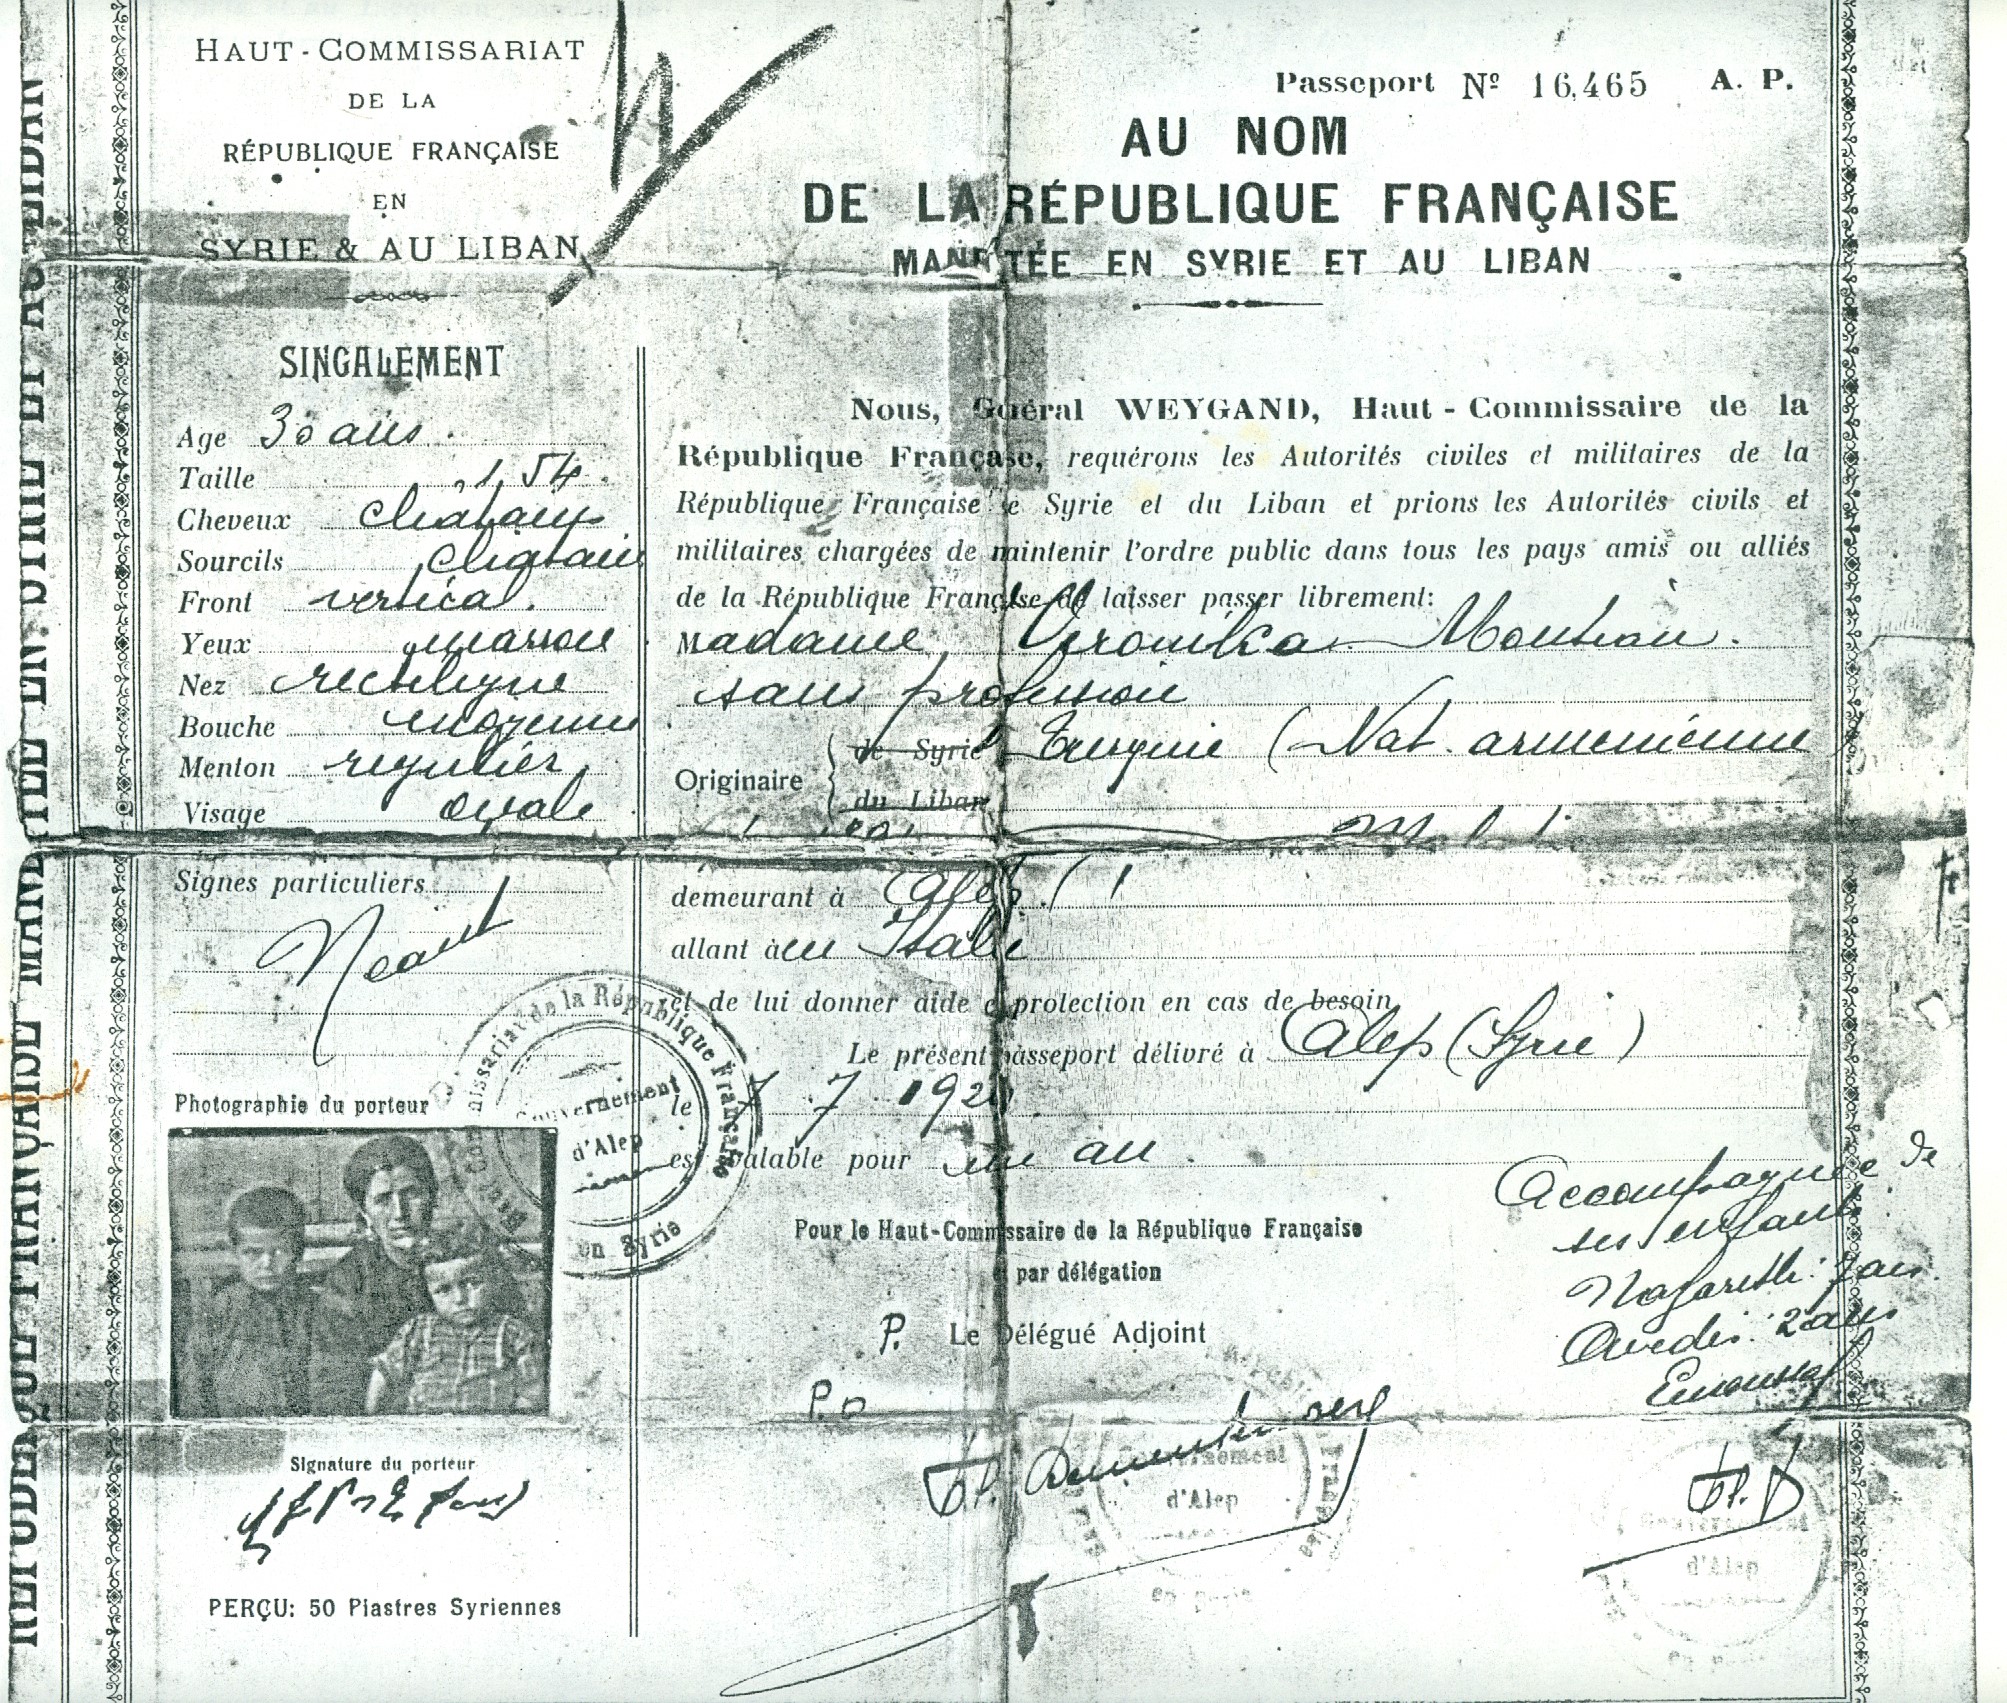 HAUT-COMMISSARIAT
DE LA
RÉPUBLIQUE FRANÇAISE
EN
SYRIE & AU LIBAN
SINGALEMENT
Age 30 ans
Taille 1,54
Cheveux châtains
Sourcils châtains
Front vertical
Yeux marron
Nez rectiligne
Bouche moyenne
Menton regulier
Visage ovale
Signes particuliers
Néant
Photographie du porteur
Signature du porteur
PERÇU: 50 Piastres Syriennes
Passeport Nº 16,465 A. P.
AU NOM
DE LA RÉPUBLIQUE FRANÇAISE
MANDATÉE EN SYRIE ET AU LIBAN
Nous, Général WEYGAND, Haut-Commissaire de la
République Française, requérons les Autorités civiles et militaires de la
République Française de Syrie et du Liban et prions les Autorités civils et
militaires chargées de maintenir l'ordre public dans tous les pays amis ou alliés
de la République Française de laisser passer librement:
Madame Veronika
sans profession
Originaire
de Syrie Turquie (Nat. armenienne
du Liban
demeurant à Alep
allant à en Italie
et de lui donner aide et protection en cas de besoin
Le présent passeport délivré à Alep (Syrie)
le 7 7 192
est valable pour un an
Pour le Haut-Commissaire de la République Française
et par délégation
P. Le Délégué Adjoint
P.o
Accompagnée de
ses enfants
Nazareth: 7 ans
Avedis: 2 ans
Haut-Commissariat de la République Française
Gouvernement
d'Alep
en Syrie
Gouvernement
d'Alep
en Syrie
Gouvernement
d'Alep
en Syrie
RÉPUBLIQUE FRANÇAISE MANDATÉE EN SYRIE ET AU LIBAN